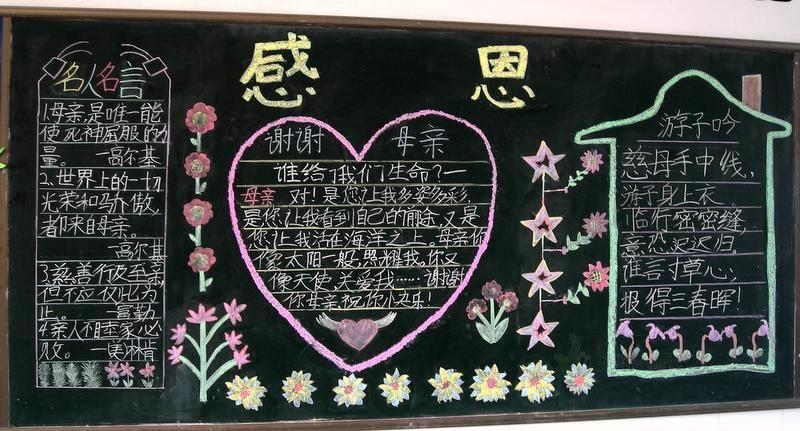 感恩
名人名言
1.母亲是唯一能
使死神屈服的力
量。 —高尔基
2.世界上的一切
光荣和骄傲,
都来自母亲。
高尔基
3.慈善行及至亲
但不应仅此为
止。—富勒
4亲人不睦家必
败。—美林肯
谢谢 母亲
谁给了我们生命?—
母亲 对!是您让我多姿多彩,
是您让我看到自己的前途,又是
您让我活在海洋之上。母亲你
像太阳一般,照耀我,你又
像天使,关爱我……谢谢
你母亲,祝你快乐!
游子吟
慈母手中线,
游子身上衣。
临行密密缝,
意恐迟迟归。
谁言寸草心,
报得三春晖!